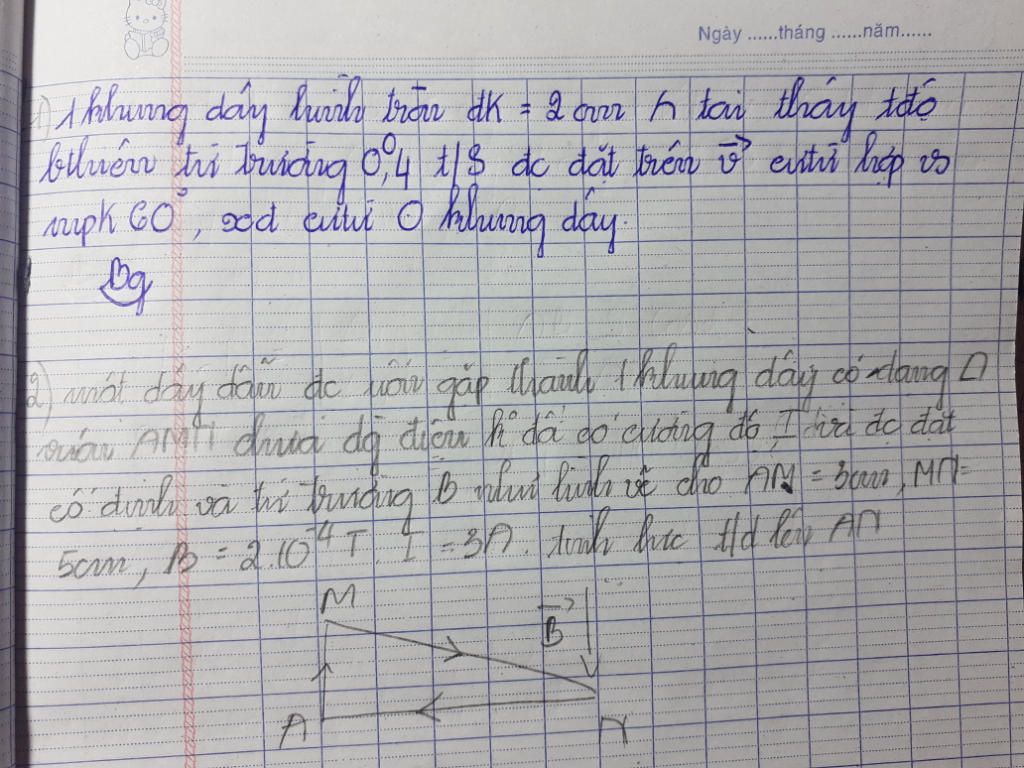 Ngày ......tháng ......năm......
1) 1 khung dây hình tròn đK = 2 cm n tại thấy tđộ
bthiên từ trường 0,4 t/s đc đặt trên v cưtừ hợp vs
mpK 60°, sđđ cưtừ O khung dây.
Bg
2) một dây dẫn đc uốn gấp thành 1 khung dây có dạng Δ
AMN dg điện có cường độ I đc đặt
cố định và từ trường B như hình vẽ cho AM = 3cm, MN=
5cm, B = 2.10⁻⁴ T. I = 3A. tính lực t/d lên AN
M
B
A
N